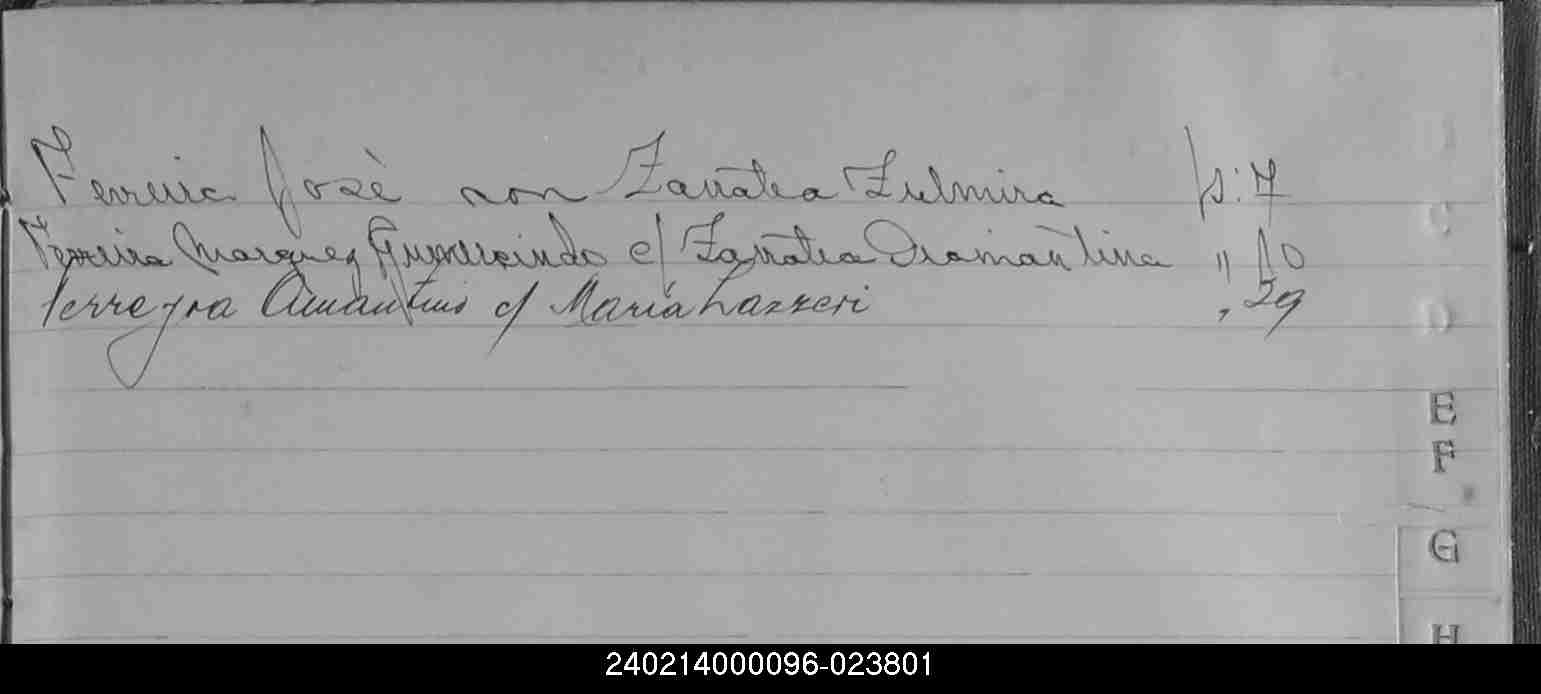 Ferreira José con Zanatta Zulmira p: 7
Ferreira Marquez Gumercindo c/ Zanatta Diamantina " 10
Ferreyra Amantino c/ Maria Lazzeri " 29
E
F
G
H
240214000096-023801